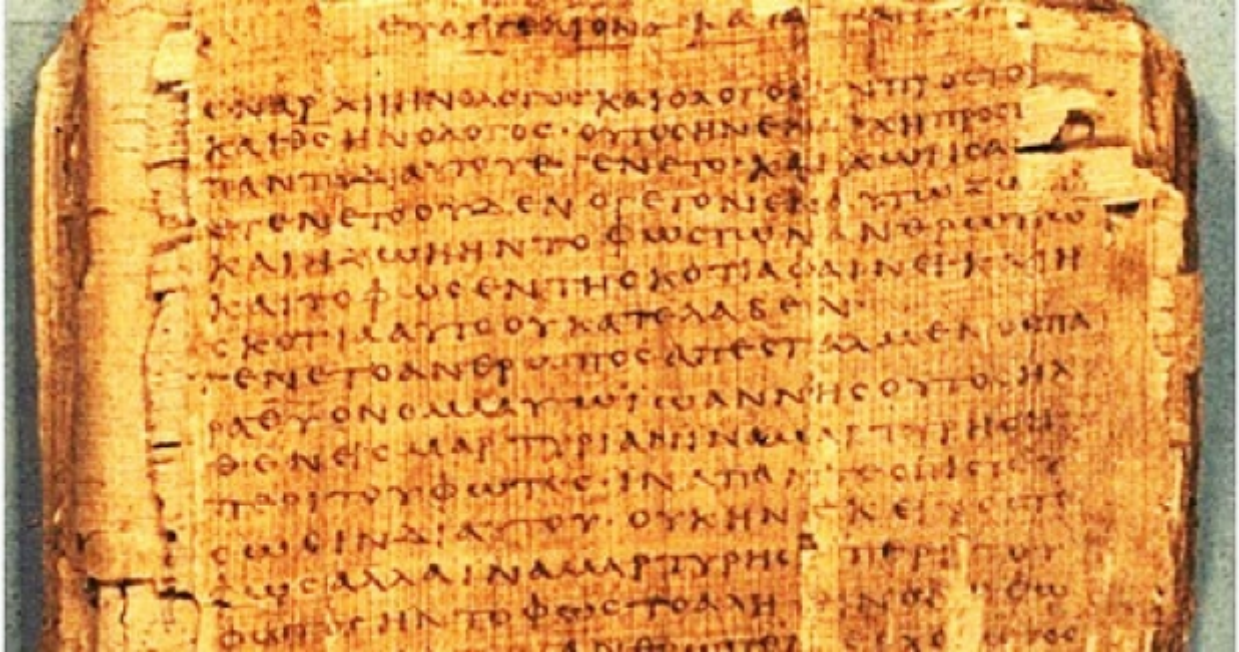 ΕΥΑΓΓΕΛΙΟΝ ΚΑΤΑ
ΕΝΑΡΧΗΗΝΟΛΟΓΟϹΚΑΙΟΛΟΓΟϹ ΗΝΠΡΟϹΤΟ
ΚΑΙΘϹΗΝΟΛΟΓΟϹ·ΟΥΤΟϹΗΝΕΝΑΡΧΗΠΡΟϹΤ
ΠΑΝΤΑΔΙΑΥΤΟΥΕΓΕΝΕΤΟ·ΚΑΙΧΩΡΙϹΑ
ΕΓΕΝΕΤΟΟΥΔΕΝΟΓΕΓΟΝΕΝΕΝΑΥΤΩΖΩ
ΚΑΙΗΖΩΗΗΝΤΟΦΩϹΤΩΝΑΝΘΡΩΠΩ
ΚΑΙΤΟΦΩϹΕΝΤΗϹΚΟΤΙΑΦΑΙΝΕΙ·ΚΑΙΗ
ϹΚΟΤΙΑΑΥΤΟΟΥΚΑΤΕΛΑΒΕΝ·
ΕΓΕΝΕΤΟΑΝΘΡΩΠΟϹΑΠΕϹΤΑΛΜΕΝΟϹΠΑ
ΡΑΘΥΟΝΟΜΑΑΥΤΩΪΩΑΝΝΗϹΟΥΤΟϹΗΛ
ΘΕΝΕΙϹΜΑΡΤΥΡΙΑΝΙΝΑΜΑΡΤΥΡΗϹΗ
ΠΕΡΙΤΟΥΦΩΤΟϹ·ΙΝΑΠΑΝΤΕϹΠΙϹΤΕΥ
ϹΩϹΙΝΔΙΑΥΤΟΥ·ΟΥΚΗΝΕΚΕΙΝΟϹΤΟ
ΦΩϹΑΛΛΑΙΝΑΜΑΡΤΥΡΗϹΗΠΕΡΙΤΟΥ
ΦΩΤΟϹΗΝΤΟΦΩϹΤΟΑΛΗΘΙΝΟΝΟΦΩ